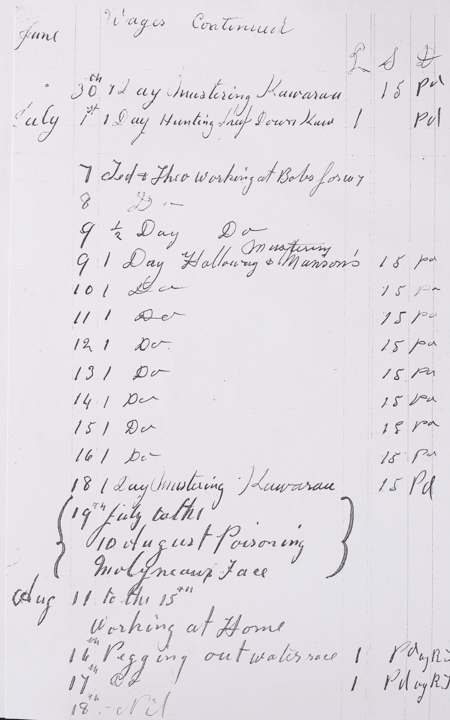 Wages Continued
June
£ S D
30th 1 Day Mustering Kawarau 15 Pd
July 1st 1 Day Hunting Down Kaw 1 Pd
7 Ted & Theo working at Bobs
8 Do -
9 ½ Day Do
Mustering
9 1 Day Holloway & Manson's 15 pd
10 1 Do 15 pd
11 1 Do 15 pd
12 1 Do 15 pd
13 1 Do 15 pd
14 1 Do 15 pd
15 1 Do 15 pd
16 1 Do 15 pd
18 1 Day Mustering Kawarau 15 Pd
19th July to the
10 August Poisoning
Molyneaux Face
Aug 11 to the 15th
Working at Home
16th Pegging out water race 1 Pd by RJ
17th Do 1 Pd by RJ
18th - Nil